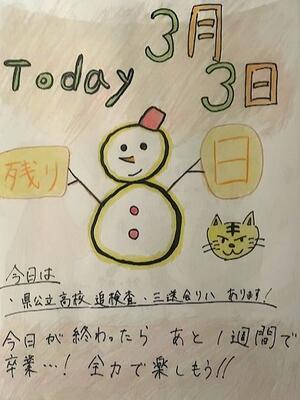 3月
Today 3日
残り 日
今日は
・県公立高校 追検査・三送会リハ あります!
今日が終わったら あと1週間で
卒業…! 全力で楽しもう!!